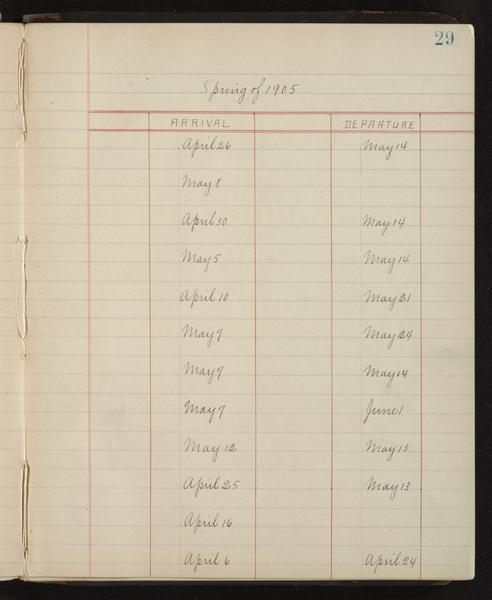 29
Spring of 1905
ARRIVAL DEPARTURE
April 26 May 14
May 8
April 30 May 14
May 5 May 14
April 10 May 21
May 7 May 24
May 7 May 14
May 7 June 1
May 12 May 13
April 25 May 13
April 16
April 6 April 24